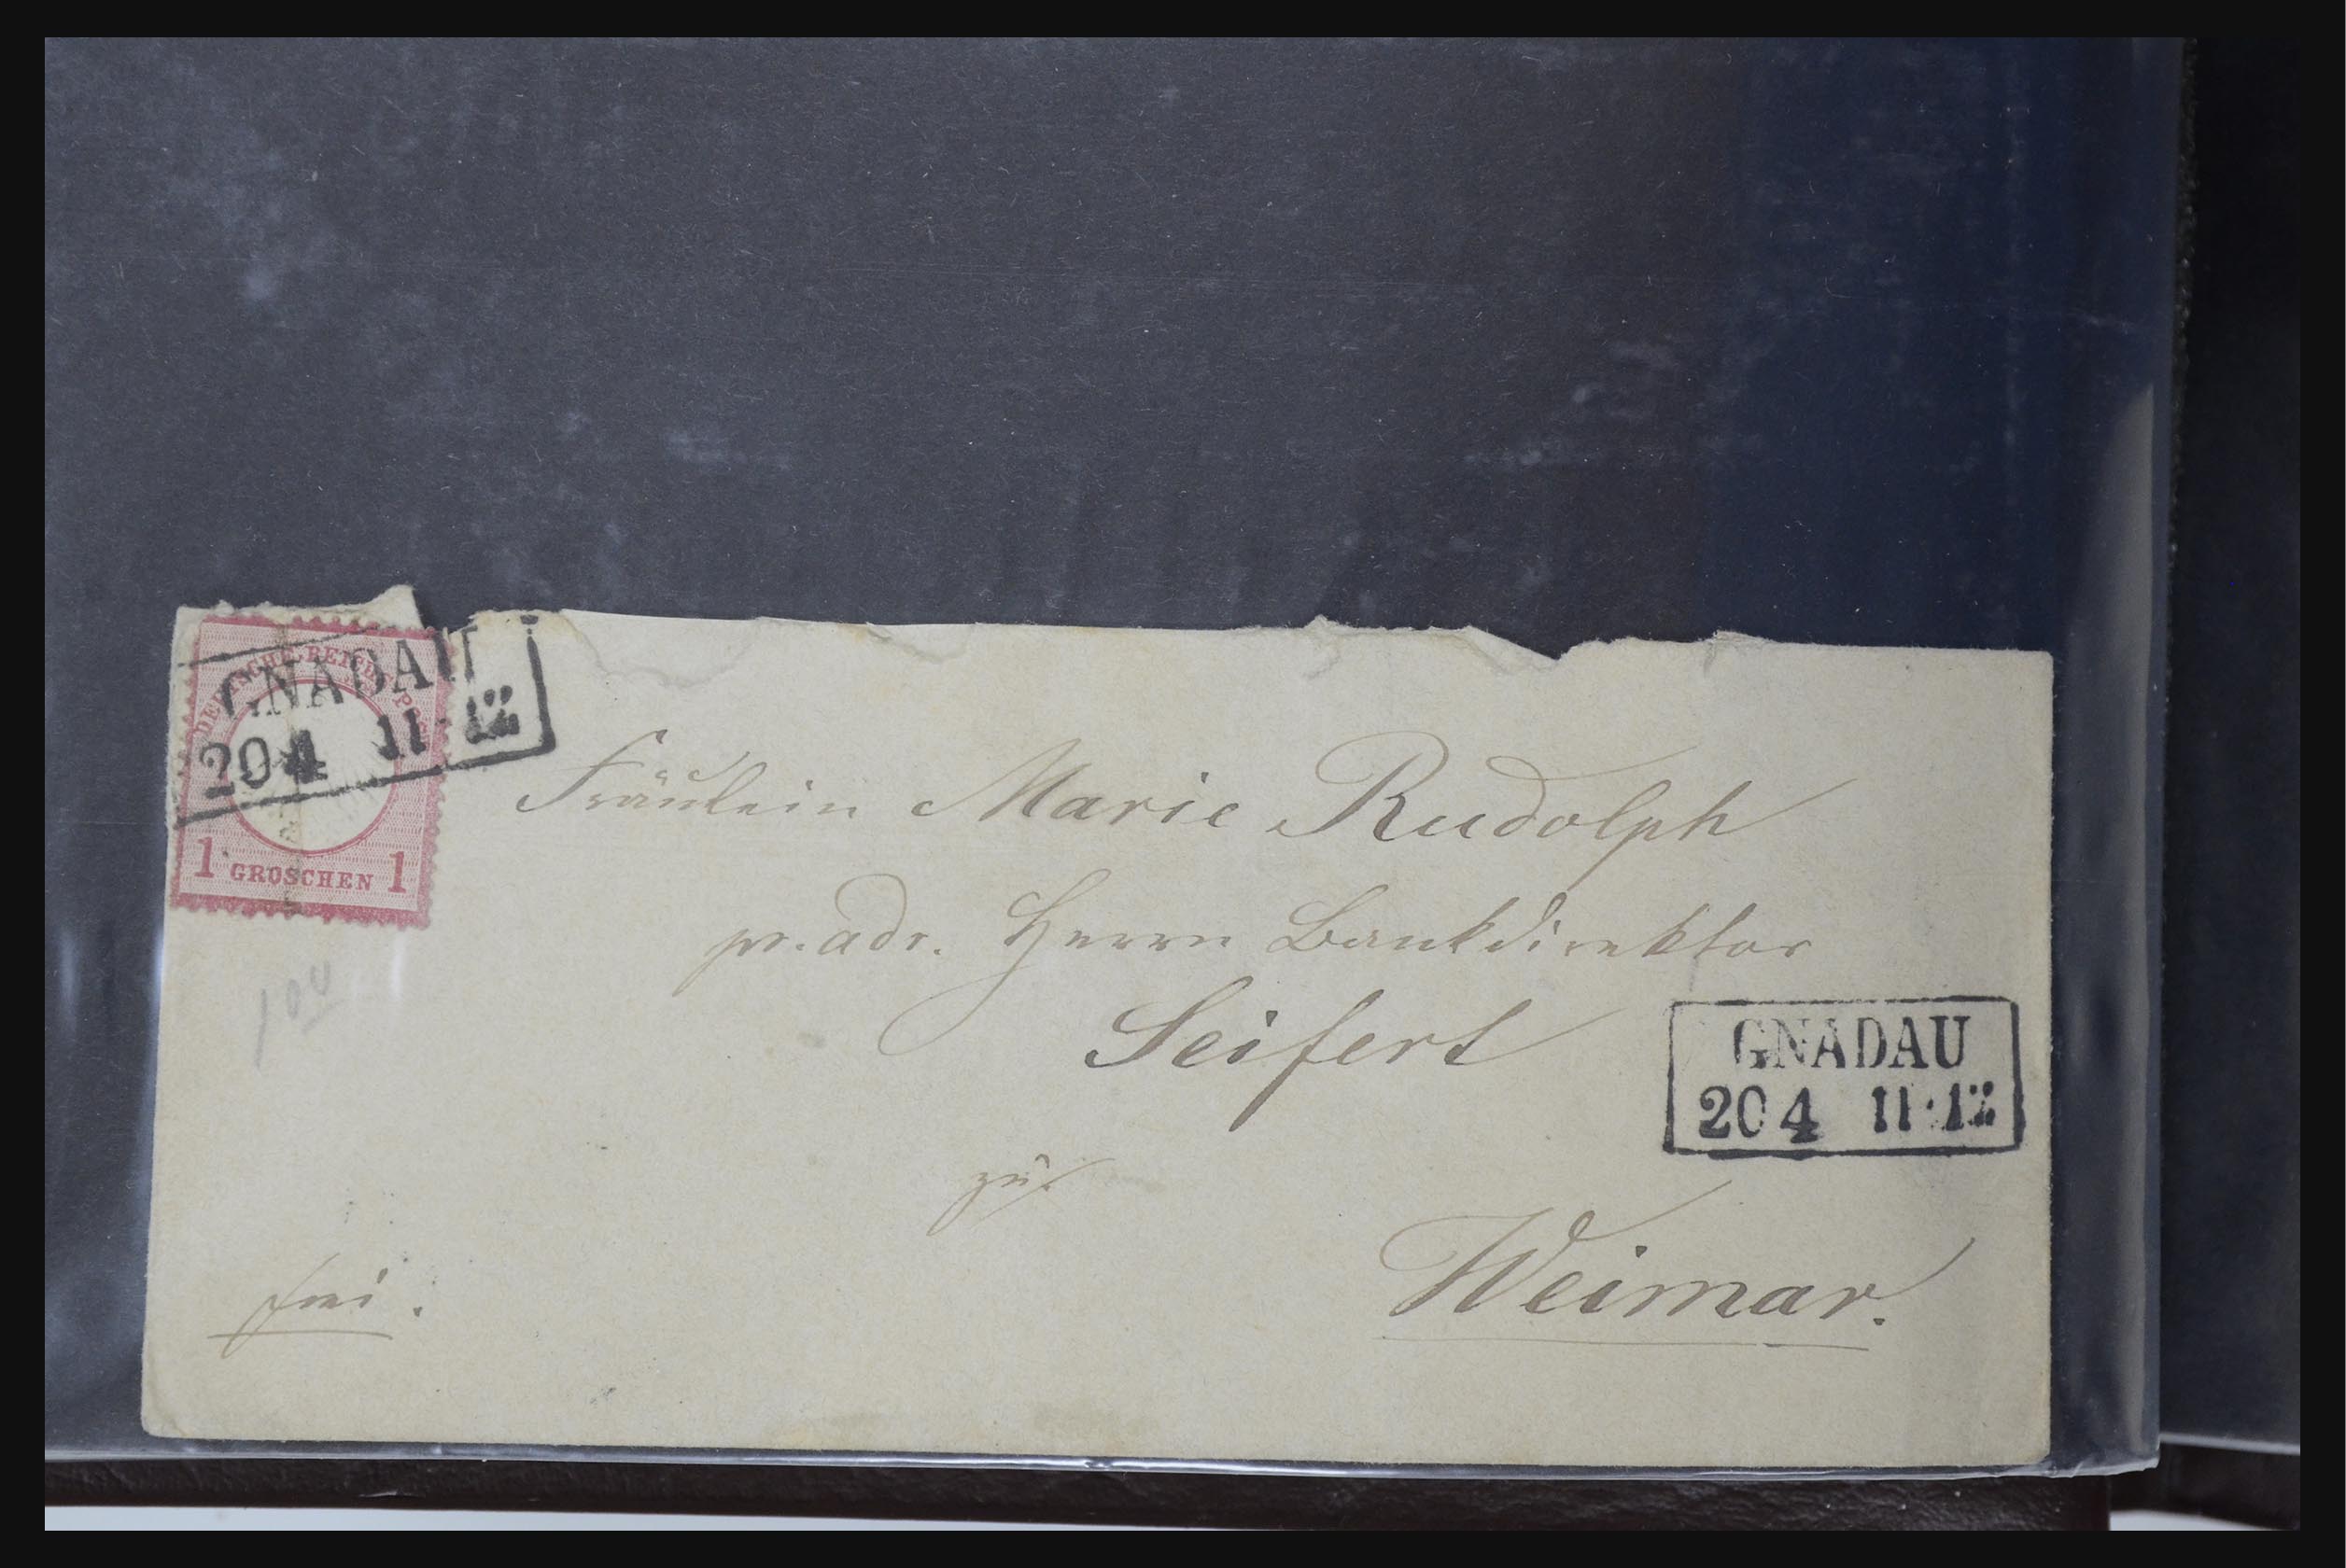 GNADAU
204 11-12
DEUTSCHE REICHS POST
1 GROSCHEN 1
Fräulein Marie Rudolph
pr. adr. Herrn Bankdirektor
Seifert
GNADAU
204 11-12
zu
Weimar.
frei.
100